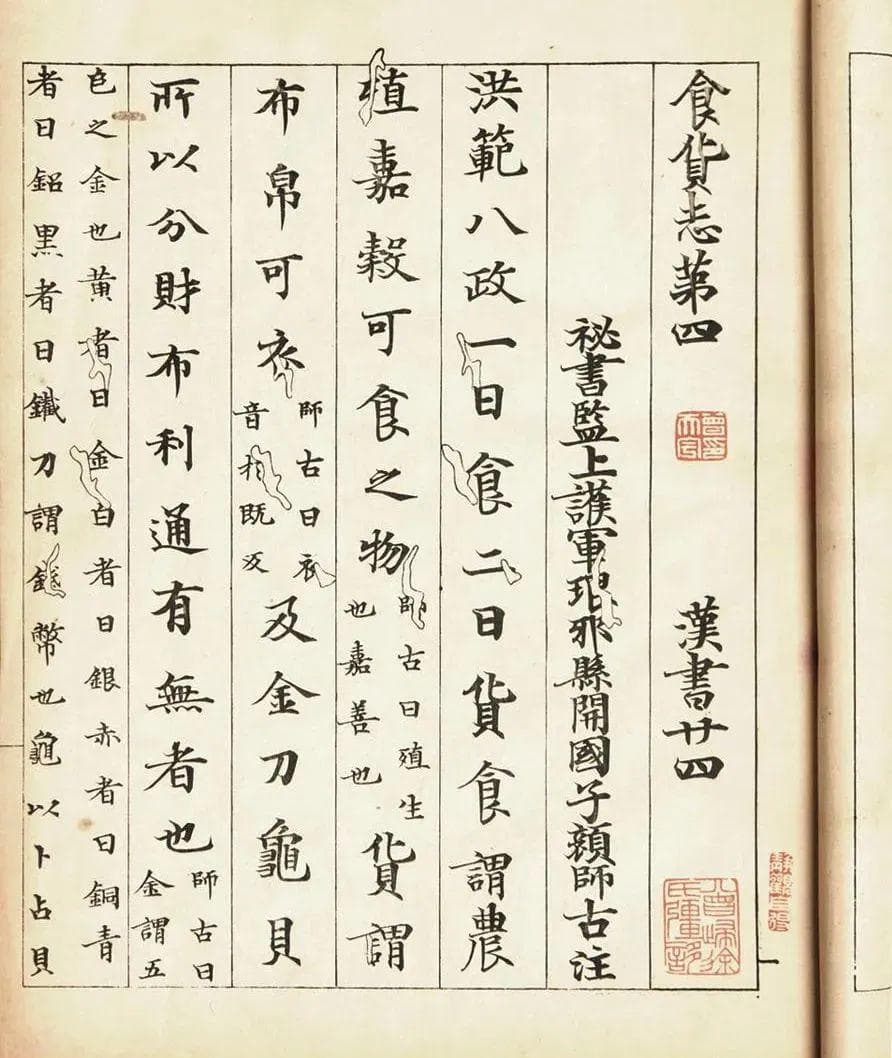 食貨志第四 漢書廿四
祕書監上護軍琅邪縣開國子顏師古注
洪範八政一曰食二曰貨食謂農
殖嘉穀可食之物師古曰殖生也嘉善也貨謂
布帛可衣師古曰衣音於既反及金刀龜貝
所以分財布利通有無者也師古曰金謂五
色之金也黃者曰金白者曰銀赤者曰銅青
者曰鈆黑者曰鐵刀謂錢幣也龜以卜占貝